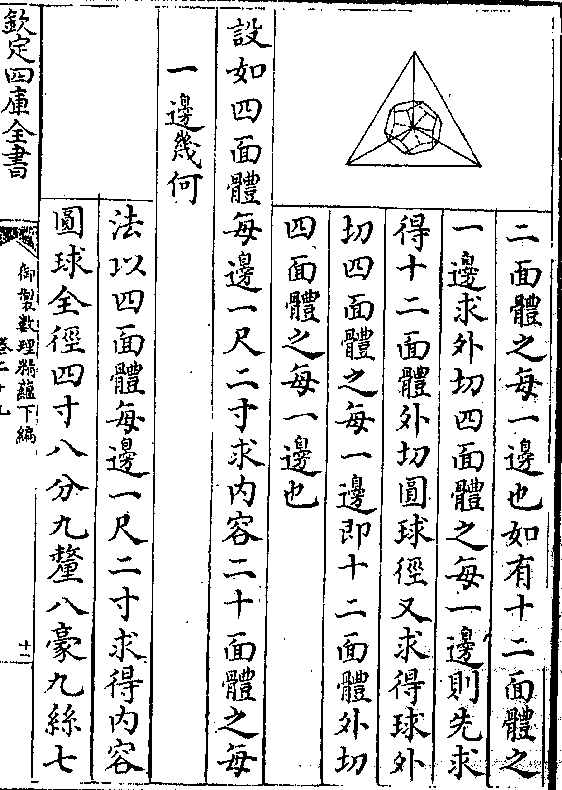 二面體之每一邊也如有十二面體之
一邊求外切四面體之每一邊則先求
得十二面體外切圓球徑又求得球外
切四面體之每一邊即十二面體外切
四面體之每一邊也
設如四面體每邊一尺二寸求内容二十面體之每
一邊幾何
法以四面體每邊一尺二寸求得内容
圓球全徑四寸八分九釐八豪九絲七
欽定四庫全書
御製数理精蘊下編
卷二十九
十二